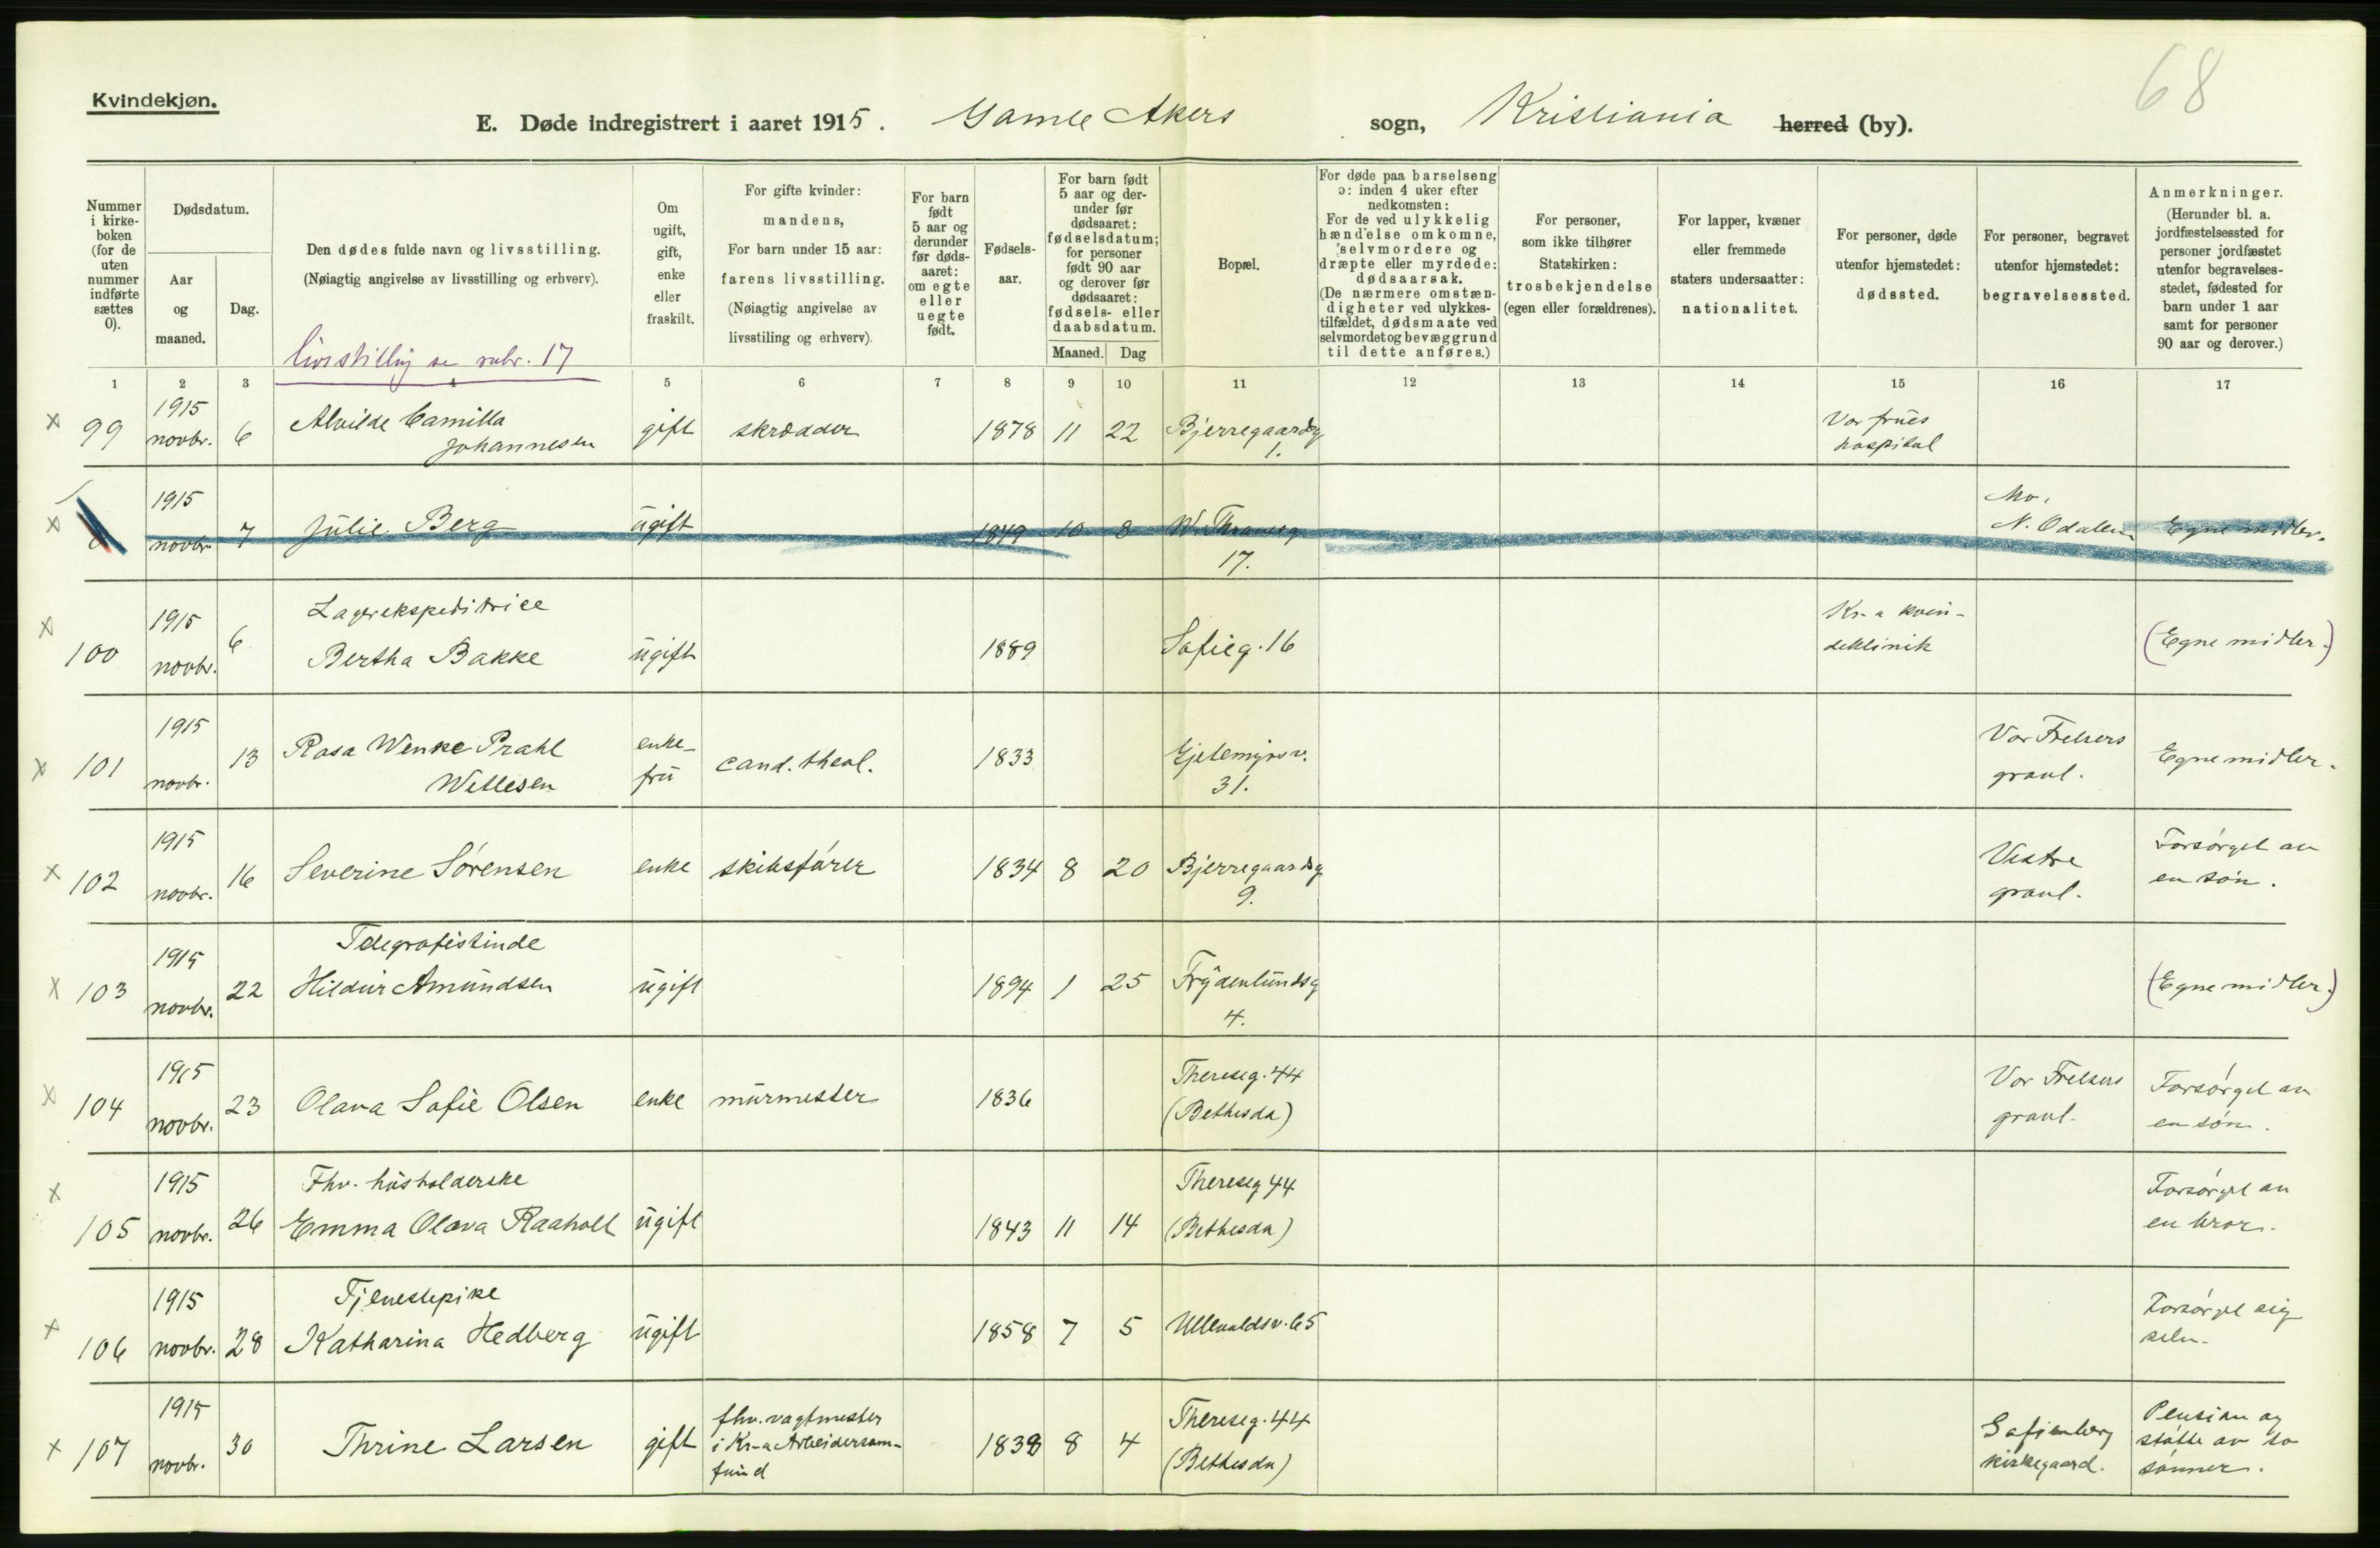 68
Kvindekjøn.
E. Døde indregistrert i aaret 1915. Gamle Akers sogn, Kristiania herred (by).
Nummer i kirke-boken (for de uten nummer indførte sættes 0).
Dødsdatum.
Aar og maaned.
Dag.
Den dødes fulde navn og livsstilling.
(Nøiagtig angivelse av livsstilling og erhverv).
livsstilling se rubr. 17
Om ugift, gift, enke eller fraskilt.
For gifte kvinder: mandens,
For barn under 15 aar: farens livsstilling.
(Nøiagtig angivelse av livsstiling og erhverv).
For barn født 5 aar og derunder før døds-aaret: om egte eller uegte født.
Fødsels-aar.
For barn født 5 aar og der-under før dødsaaret: fødselsdatum; for personer født 90 aar og derover før dødsaaret: fødsels- eller daabsdatum.
Maaned. Dag
Bopæl.
For døde paa barselseng ɔ: inden 4 uker efter nedkomsten:
For de ved ulykkelig hændelse omkomne, selvmordere og dræpte eller myrdede: dødsaarsak.
(De nærmere omstæn-digheter ved ulykkes-tilfældet, dødsmaate ved selvmordet og bevæggrund til dette anføres.)
For personer, som ikke tilhører Statskirken: trosbekjendelse (egen eller forældrenes).
For lapper, kvæner eller fremmede staters undersaatter: nationalitet.
For personer, døde utenfor hjemstedet: dødssted.
For personer, begravet utenfor hjemstedet: begravelsessted.
Anmerkninger.
(Herunder bl. a. jordfæstelsessted for personer jordfæstet utenfor begravelses-stedet, fødested for barn under 1 aar samt for personer 90 aar og derover.)
1 2 3 4 5 6 7 8 9 10 11 12 13 14 15 16 17
x 99 1915 novbr. 6 Alvilde Camilla Johannesen gift skrædder 1878 11 22 Bjerregaardsg 1. Vor frues hospital
x 1915 novbr. 7 Julie Berg ugift 1849 10 8 W. Thranesg 17. Mo, N. Odalen Egne midler.
x 100 1915 novbr. 6 Lagerekspeditrice Bertha Bakke ugift 1889 Sofieg. 16 Kr-a kvin-deklinik (Egne midler.)
x 101 1915 novbr. 13 Rosa Wenke Prahl Willesen enke-fru cand. theol. 1833 Gjetemyrsv. 31. Vor Frelsers gravl. Egne midler.
x 102 1915 novbr. 16 Severine Sørensen enke skibsfører 1834 8 20 Bjerregaardsg 9. Vestre gravl. Forsørget av en søn.
x 103 1915 novbr. 22 Telegrafistinde Hildur Amundsen ugift 1894 1 25 Frydenlundsg 4. (Egne midler.)
x 104 1915 novbr. 23 Olava Sofie Olsen enke murmester 1836 Thereseg. 44 (Bethesda) Vor Frelsers gravl. Forsørget av en søn.
x 105 1915 novbr. 26 Fhv. husholderske Emma Olava Raaholt ugift 1843 11 14 Thereseg 44 (Bethesda) Forsørget av en bror.
x 106 1915 novbr. 28 Tjenestepike Katharina Hedberg ugift 1858 7 5 Ullevaldsv. 65 Forsørget sig selv.
x 107 1915 novbr. 30 Thrine Larsen gift fhv. vagtmester i Kr-a Arbeidersam-fund 1838 8 4 Thereseg. 44 (Bethesda) Sofienberg kirkegaard. Pension og støtte av to sønner.